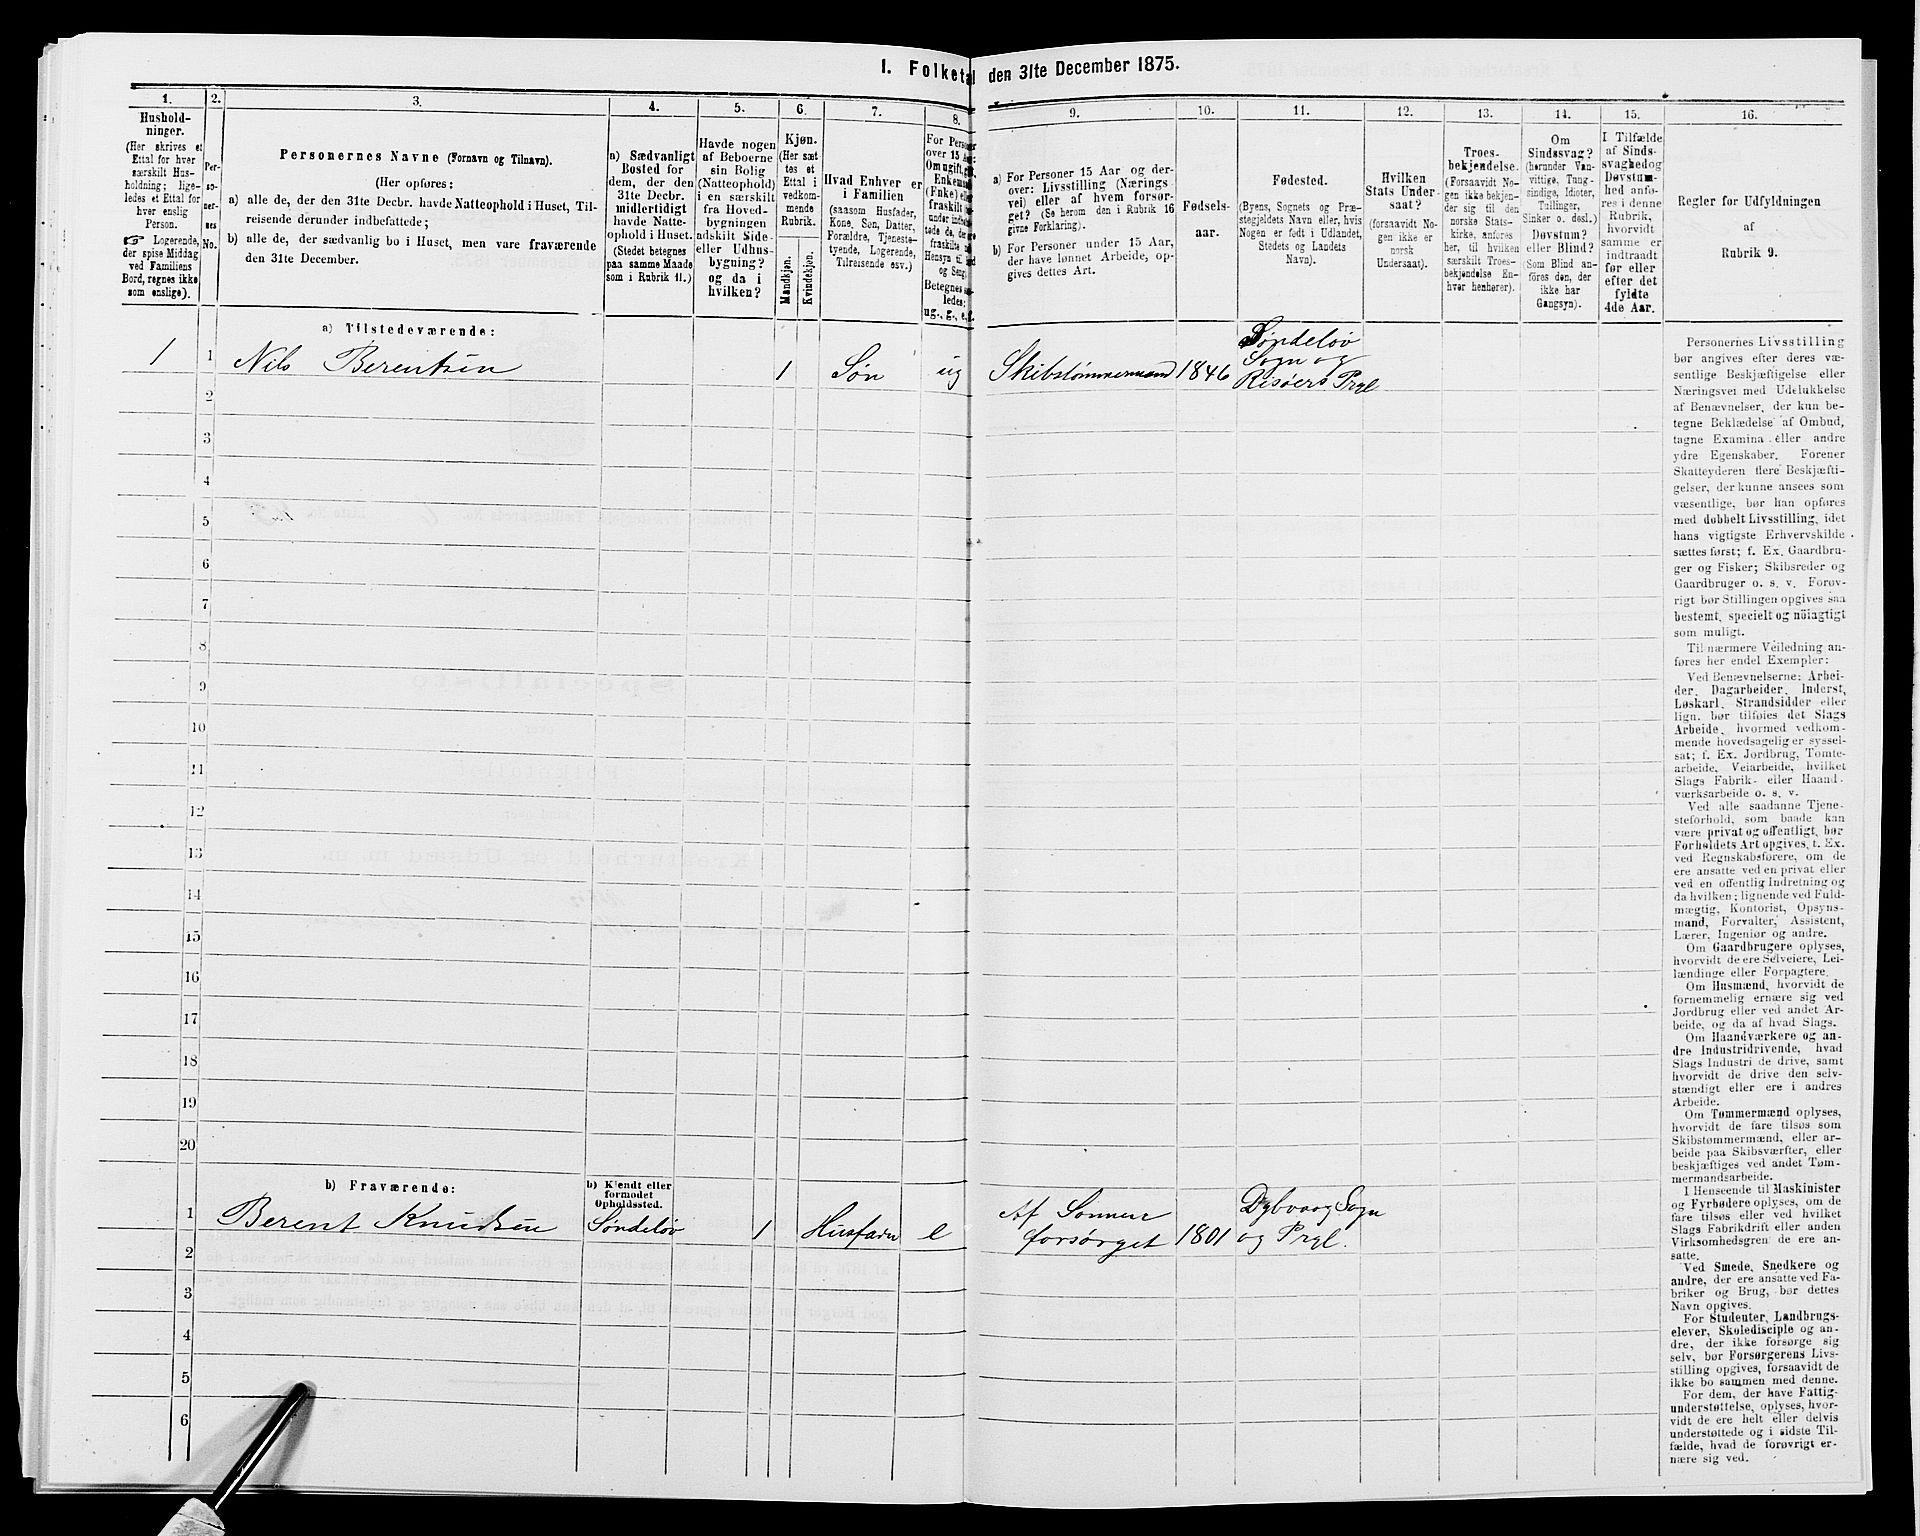 I. Folketal den 31te December 1875.
1.
Hushold-
ninger.
(Her skrives et
Ettal for hver
særskilt Hus-
holdning; lige-
ledes et Ettal for
hver enslig
Person.
☞ Logerende,
der spise Middag
ved Familiens
Bord, regnes ikke
som enslige).
2.
Per-
so-
ner-
nes
No.
3.
Personernes Navne (Fornavn og Tilnavn).
(Her opføres:
a) alle de, der den 31te Decbr. havde Natteophold i Huset, Til-
reisende derunder indbefattede;
b) alle de, der sædvanlig bo i Huset, men vare fraværende
den 31te December.
4.
a) Sædvanligt
Bosted for
dem, der den
31te Decbr.
midlertidigt
havde Natte-
ophold i Huset.
(Stedet betegnes
paa samme Maade
som i Rubrik 11.)
5.
Havde nogen
af Beboerne
sin Bolig
(Natteophold)
i en særskilt
fra Hoved-
bygningen
adskilt Side-
eller Udhus-
bygning?
og da i
hvilken?
6.
Kjøn.
(Her sæt-
tes et
Ettal i
vedkom-
mende
Rubrik.
Mandkjøn.
Kvindekjøn.
7.
Hvad Enhver er
i Familien
(saasom Husfader,
Kone, Søn, Datter,
Forældre, Tjeneste-
tyende, Logerende,
Tilreisende osv.)
8.
ug., g., e., f.
9.
a) For Personer 15 Aar og der-
over: Livsstilling (Nærings-
vei) eller af hvem forsør-
get? (Se herom den i Rubrik 16
givne Forklaring).
b) For Personer under 15 Aar,
der have lønnet Arbeide, op-
gives dettes Art.
10.
Fødsels-
aar.
11.
Fødested.
(Byens, Sognets og Præ-
stegjeldets Navn eller, hvis
Nogen er født i Udlandet,
Stedets og Landets
Navn).
12.
Hvilken
Stats Under-
saat?
(forsaavidt No-
gen ikke er
norsk
Undersaat).
13.
Troes-
bekjendelse.
(Forsaavidt No-
gen ikke bekjen-
der sig til den
norske Stats-
kirke, anføres
her, til hvilken
særskilt Troes-
bekjendelse En-
hver henhører).
14.
Om
Sindssvag?
(herunder Van-
vittige, Tung-
sindige, Idioter,
Tullinger,
Sinker o. desl.)
Døvstum?
eller Blind?
(Som Blind an-
føres den, der
ikke har
Gangsyn).
15.
I Tilfælde
af Sinds-
svaghed og
Døvstum-
hed anfø-
res i denne
Rubrik,
hvorvidt
samme er
indtraadt
før eller
efter det
fyldte
4de Aar.
16.
Regler for Udfyldningen
af
Rubrik 9.
a) Tilstedeværende:
1 1 Nils Berentsen 1 Søn ug Skibstømmermand 1846 Søndeløv
Sogn og
Risøers Prgl
2
3
4
5
6
7
8
9
10
11
12
13
14
15
16
17
18
19
20
b) Fraværende:
b) Kjendt eller
formodet
Opholdssted.
1 Berent Knudsen Søndeløv 1 Husfader e Af Sønnen
forsørget 1801 Dybvaag Sogn
og Prgl.
2
3
4
5
6
Personernes Livsstilling
bør angives efter deres væ-
sentlige Beskjæftigelse eller
Næringsvei med Udelukkelse
af Benævnelser, der kun be-
tegne Beklædelse af Ombud,
tagne Examina eller andre
ydre Egenskaber. Forener
Skatteyderen flere Beskjæfti-
gelser, der kunne ansees som
væsentlige, bør han opføres
med dobbelt Livsstilling, idet
hans vigtigste Erhvervskilde
sættes først; f. Ex. Gaardbru-
ger og Fisker; Skibsreder og
Gaardbruger o. s. v. Forøv-
rigt bør Stillingen opgives saa
bestemt, specielt og nöiagtigt
som muligt.
Til nærmere Veiledning an-
føres her endel Exempler:
Ved Benævnelserne: Arbei-
der, Dagarbeider, Inderst,
Løskarl, Strandsidder eller
lign. bør tilføies det Slags
Arbeide, hvormed vedkom-
mende hovedsagelig er syssel-
sat; f. Ex. Jordbrug, Tomte-
arbeide, Veiarbeide, hvilket
Slags Fabrik- eller Haand-
værksarbeide o. s. v.
Ved alle saadanne Tjene-
steforhold, som baade kan
være privat og offentligt, bør
Forholdets Art opgives, f. Ex.
ved Regnskabsførere, om de
ere ansatte ved en privat eller
ved en offentlig Indretning og
da hvilken; lignende ved Fuld-
mægtig, Kontorist, Opsyns-
mand, Forvalter, Assistent,
Lærer, Ingeniør og andre.
Om Gaardbrugere oplyses,
hvorvidt de ere Selveiere, Lei-
lændinge eller Forpagtere.
Om Husmænd, hvorvidt de
fornemmelig ernære sig ved
Jordbrug eller ved andet Ar-
beide, og da af hvad Slags.
Om Haandværkere og an-
dre Industridrivende, hvad
Slags Industri de drive, samt
hvorvidt de drive den selv-
stændigt eller ere i andres
Arbeide.
Om Tømmermænd oplyses,
hvorvidt de fare tilsøs som
Skibstømmermænd, eller ar-
beide paa Skibsværfter, eller
beskjæftiges ved andet Tøm-
mermandsarbeide.
I Henseende til Maskinister
og Fyrbødere oplyses, om de
fare tilsøs eller ved hvilket
Slags Fabrikdrift eller anden
Virksomhedsgren de ere an-
satte.
Ved Smede, Snedkere og
andre, der ere ansatte ved Fa-
briker og Brug, bør dettes
Navn opgives.
For Studenter, Landbrugs-
elever, Skoledisciple og an-
dre, der ikke forsørge sig
selv, bør Forsørgerens Livs-
stilling opgives, forsaavidt de
ikke bo sammen med denne.
For dem, der have Fattig-
understøttelse, oplyses, hvor-
vidt de ere helt eller delvis
understøttede og i sidste Til-
fælde, hvad de forøvrigt er-
nære sig ved.